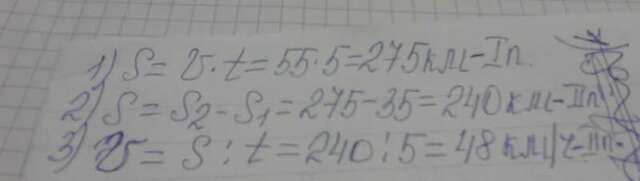 1) S = v · t = 55 · 5 = 275 км - I п.
2) S = S₂ - S₁ = 275 - 35 = 240 км - II п
3) v = S : t = 240 : 5 = 48 км/ч - II п -